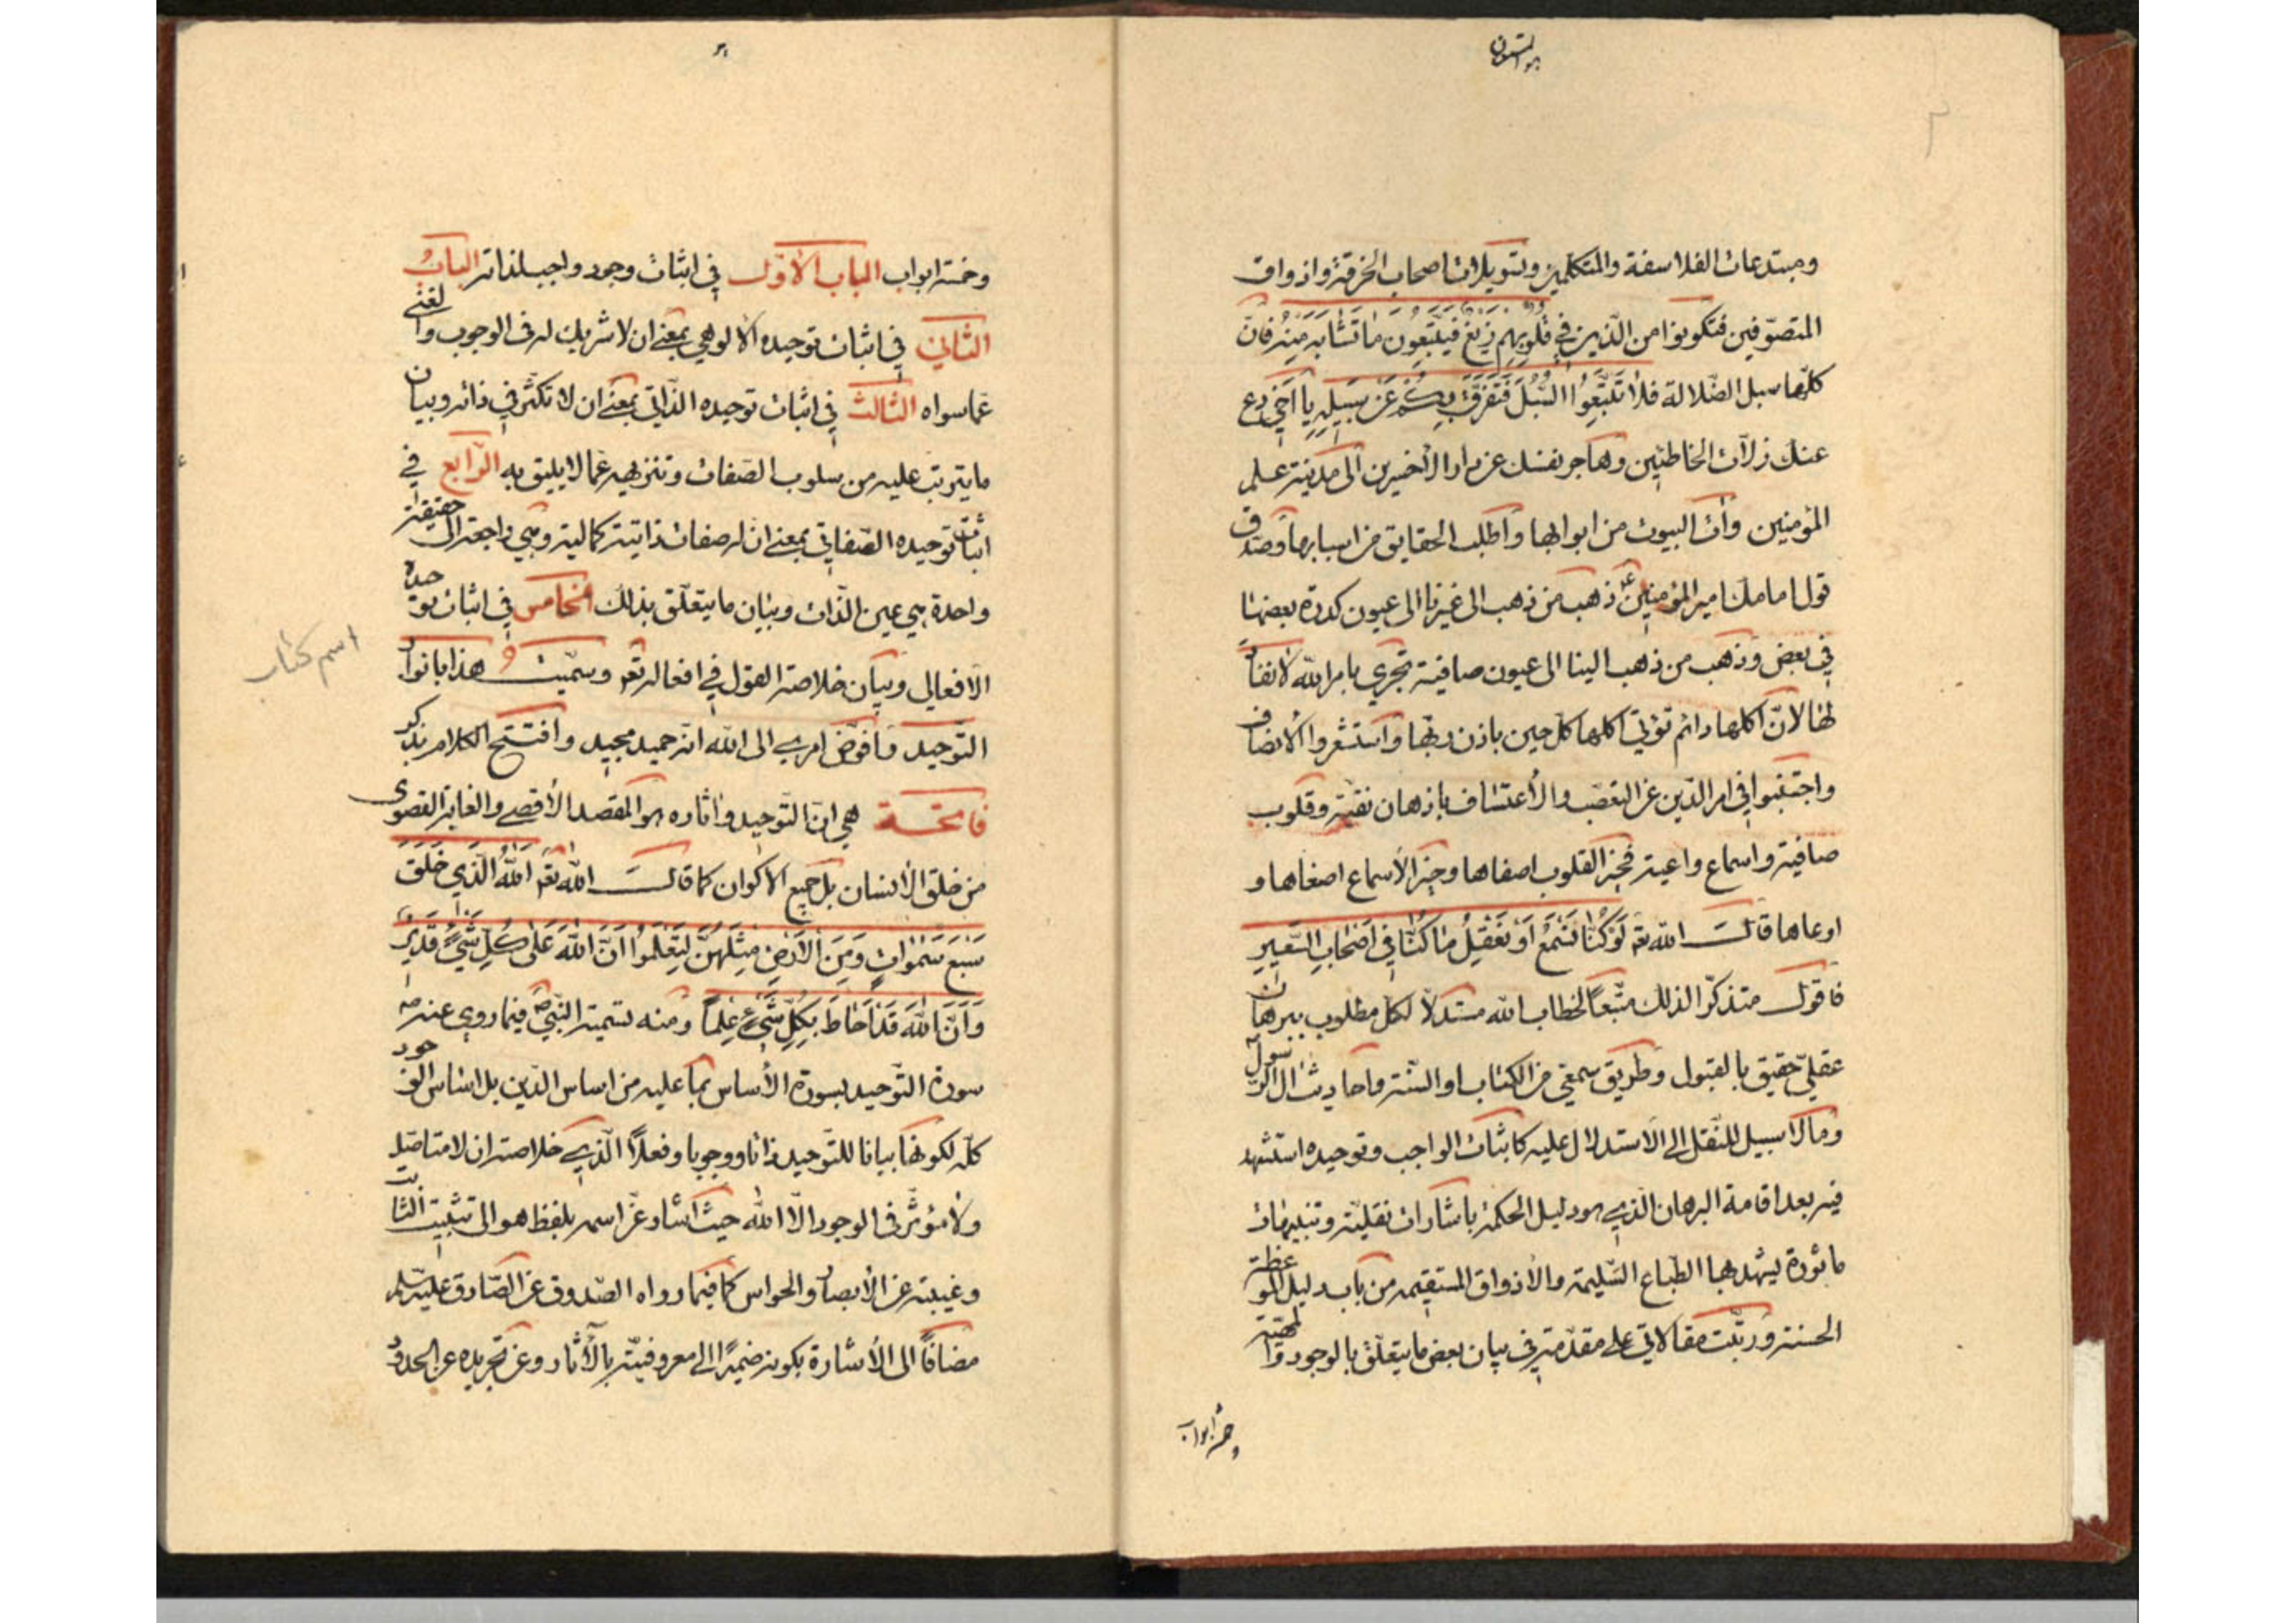 هو المستعان
ومبتدعات الفلاسفة والمتكلمين وتسويلات اصحاب الخرقة واذواق
المتصوّفين فتكونوا من الّذين في قُلُوبِهِم زَيغٌ فَيَتَّبِعُونَ مٰا تَشٰابَهَ مِنهُ فانّ
كلّها سبل الضّلالة فلٰا تَتَّبِعُوا السُّبُلَ فَتَفَرَّقَ بِكُم عَن سَبِيلِهِ يا اخي دع
عنك زلّات الخاطئين وهاجر نفسك عن دار الأخسرين الى مدينة علم
المؤمنين وأت البيوت من ابوابها واطلب الحقايق من اسبابها وصدّق
قول امامك امير المؤمنين ع ذهب من ذهب الى غيرنا الى عيون كدرة بعضها
في بعض وذهب من ذهب الينا الى عيون صافية تجري بامر الله لا نفاد
لها لانّ اكلها دائم تؤتي اكلها كلّ حين باذن ربّها واستشعروا الانصاف
واجتنبوا في امر الدّين عن التعصّب والأعتساف باذهان نقيّة وقلوب
صافية واسماع واعية فخير القلوب اصفاها وخير الأسماع اصغاها و
اوعاها قال الله تع لَوْ كُنّٰا نَسْمَعُ اَوْ نَعْقِلُ مٰا كُنّٰا فِي اَصْحٰابِ السَّعِيرِ
فاقول متذكّرا لذلك متّبعاً لخطاب الله مستدلّاً لكلّ مطلوب ببرهان
عقليّ حقيق بالقبول وطريق سمعي من الكتاب او السنّة واحاديث آل الرسول
وما لا سبيل للنّقل الى الاستدلال عليه كاثبات الواجب وتوحيده استشهد
فيه بعد اقامة البرهان الّذي هو دليل الحكمة باشارات نقليّة وتنبيهات
مأثورة ليشهد بها الطّباع السّليمة والأذواق المستقيمة من باب دليل الموعظة
الحسنة ورتّبت مقالاتي على مقدّمة في بيان بعض ما يتعلّق بالوجود والمهيّة
وخمسة ابواب
وخمسة ابواب الباب الاوّل في اثبات وجود واجب لذاته الباب
الثاني في اثبات توحيده الالوهي بمعنى ان لا شريك له في الوجوب والغنى
عمّا سواه الثالث في اثبات توحيده الذّاتي بمعنى ان لا تكثّر في ذاته وبيان
ما يترتب عليه من سلوب الصّفات وتنزيهه عمّا لا يليق به الرّابع في
اثبات توحيده الصّفاتي بمعنى ان له صفات ذاتية كمالية وهي راجعة الى حقيقة
واحدة هي عين الذّات وبيان ما يتعلّق بذلك الخامس في اثبات توحيده
الأفعالي وبيان خلاصة القول في افعاله تع وسمّيت هذا بانوار
اسم كتاب
التّوحيد وافوّض امري الى الله انّه حميد مجيد وافتتح الكلام بذكر
فاتحة هي انّ التّوحيد واثاره هو المقصد الأقصى والغاية القصوى
من خلق الأنسان بل جميع الاكوان كما قال الله تع اَللّٰهُ الَّذِي خَلَقَ
سَبْعَ سَمٰوٰاتٍ وَمِنَ الْاَرْضِ مِثْلَهُنَّ لِتَعْلَمُوا اَنَّ اللّٰهَ عَلىٰ كُلِّ شَيْءٍ قَدِيرٌ
وَاَنَّ اللّٰهَ قَدْ اَحٰاطَ بِكُلِّ شَيْءٍ عِلْماً ومنه تسمية النّبيّ ص فيما روي عنه ص
سورة التّوحيد بسورة الأساس بما عليه من اساس الدّين بل اساس الوجود
كلّه لكونها بيانا للتّوحيد ذاتا ووجوبا وفعلاً الّذي خلاصته ان لا متاصّل
ولا مؤثّر في الوجود الّا الله حيث اشار عن اسمه بلفظ هو الى تثبيت الثابت
وغيبته عن الأبصار والحواس كما فيما رواه الصّدوق عن الصّادق عليه السلم
مضافاً الى الأشارة بكونه ضميراً الى معروفيّته بالأثار وعن تجريده عن الحدود